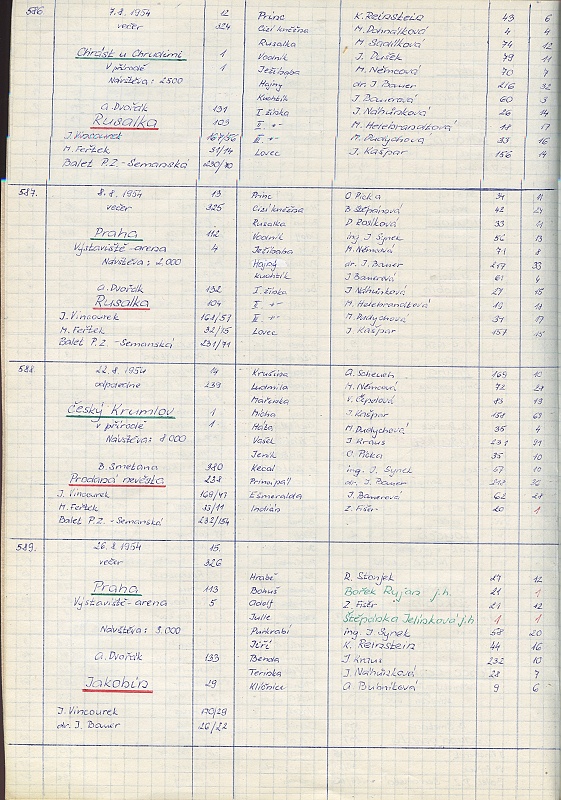 586. 7.8.1954 12 Princ K. Reinstein 43 6
večer 324 Cizí kněžna M. Dohnálková 4 4
Rusalka M. Sadílková 74 12
Chrást u Chrudimi 1 Vodník J. Dušek 79 11
V přírodě 1 Ježibaba M. Němcová 70 7
Návštěva: 2500 Hajný dr. J. Bauer 216 32
Kuchtík J. Bauerová 60 3
A. Dvořák 131 I. žínka J. Náhůnková 26 14
Rusalka 103 II. -"- M. Helebrandtová 18 17
J. Vincourek 167/56 III. -"- M. Pudychová 33 16
M. Feřtek 31/14 Lovec J. Kašpar 156 14
Balet P.Z. - Semanská 230/70
587. 8.8.1954 13 Princ O. Picka 34 11
večer 325 Cizí kněžna B. Štěpánová 42 24
Rusalka D. Rosíková 33 11
Praha 112 Vodník ing. J. Synek 56 13
Výstaviště - arena 4 Ježibaba M. Němcová 71 8
Návštěva: 2.000 Hajný dr. J. Bauer 217 33
Kuchtík J. Bauerová 61 4
A. Dvořák 132 I. žínka J. Náhůnková 27 15
Rusalka 104 II. -"- M. Helebrandtová
J. Vincourek 168/57 III. -"- M. Pudychová 34 17
M. Feřtek 32/15 Lovec J. Kašpar 157 15
Balet P.Z. - Semanská 231/71
588 22.8.1954 14 Krušina A. Scheueh 169 10
odpoledne 239 Ludmila M. Němcová 72
Mařenka V. Čepulová 13 13
Český Krumlov 1 Mícha J. Kašpar 158 69
V přírodě 1 Háta M. Pudychová 35 4
Návštěva: 8000 Vašek J. Kraus 231 91
Jeník O. Picka 35 10
B. Smetana 380 Kecal ing. J. Synek 57 10
Prodaná nevěsta 238 Principál dr. J. Bauer 218 36
J. Vincourek 169/47 Esmeralda J. Bauerová 62 28
M. Feřtek 33/11 Indián Z. Fišer 20 1
Balet P.Z. - Semanská 232/154
589. 26.8.1954 15.
večer 326
Hrabě R. Stonjek 27 12
Praha 113 Bohuš Bořek Rujan j.h. 21 1
Výstaviště - arena 5 Adolf Z. Fišer 21 12
Julie Štěpánka Jelínková j.h. 1 1
Návštěva: 3.000 Purkrabí ing. J. Synek 58 20
Jiří K. Reinstein 44 16
A. Dvořák 133 Benda J. Kraus 232 10
Terinka J. Náhůnková 28 7
Jakobín 29 Klíčnice A. Bubníková 9 6
J. Vincourek 170/29
dr. J. Bauer 26/22